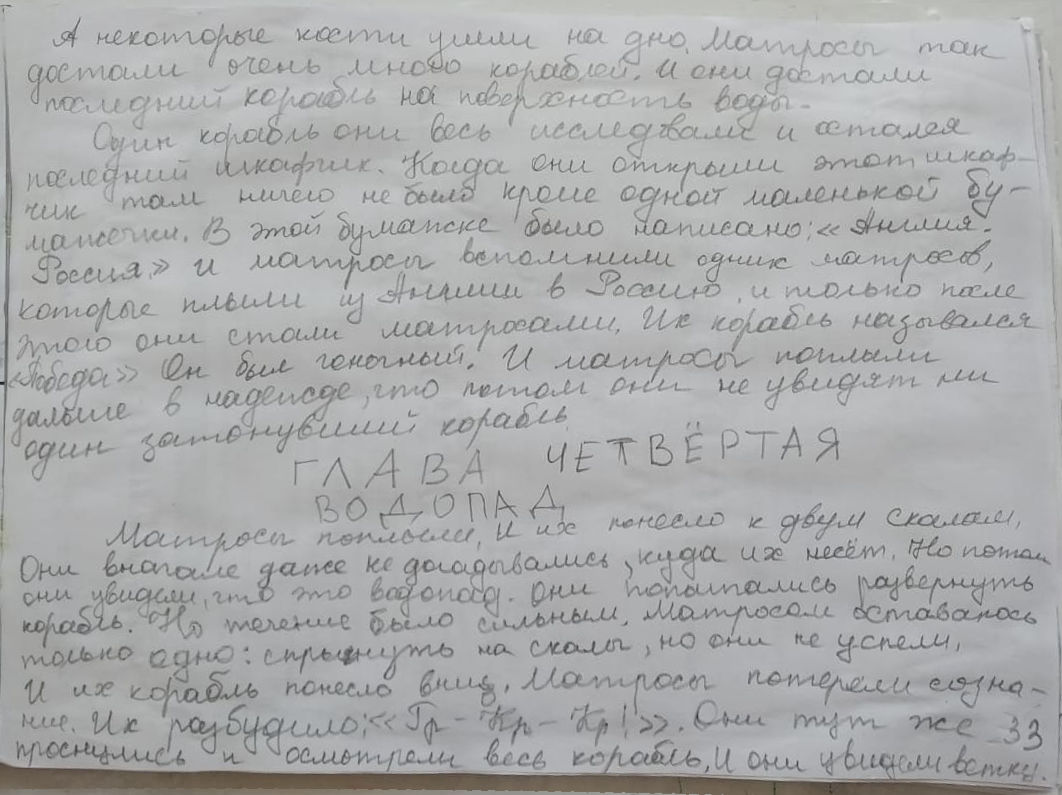 А некоторые кости ушли на дно. Матросы так
достали очень много кораблей. И они достали
последний корабль на поверхность воды.
Один корабль они весь исследвали и остался
последний шкафчик. Когда они открыли этот шкаф-
чик там ничего не было кроме одной маленькой бу-
мажечки. В этой бумажке было написано: «Англия.
Россия» И матросы вспомнили одних матросов,
которые плыли из Англии в Россию, и только после
этого они стали матросами. Их корабль назывался
«Победа» Он был гоночный. И матросы поплыли
дальше в надежде, что потом они не увидят ни
один затонувший корабль.
ГЛАВА ЧЕТВЁРТАЯ
ВОДОПАД
Матросы поплыли, И их понесло к двум скалам,
Они вначале даже не догадывались, куда их несёт. Но потом
они увидели, что это водопад. Они попытались развернуть
корабль. Но течение было сильным, Матросам оставалось
только одно: спрыгнуть на скалы, но они не успели,
И их корабль понесло вниз. Матросы потеряли созна-
ние. Их разбудило: «Гр-Кр-Кр!». Они тут же 33
проснулись и осмотрели весь корабль, И они увидели ветку.